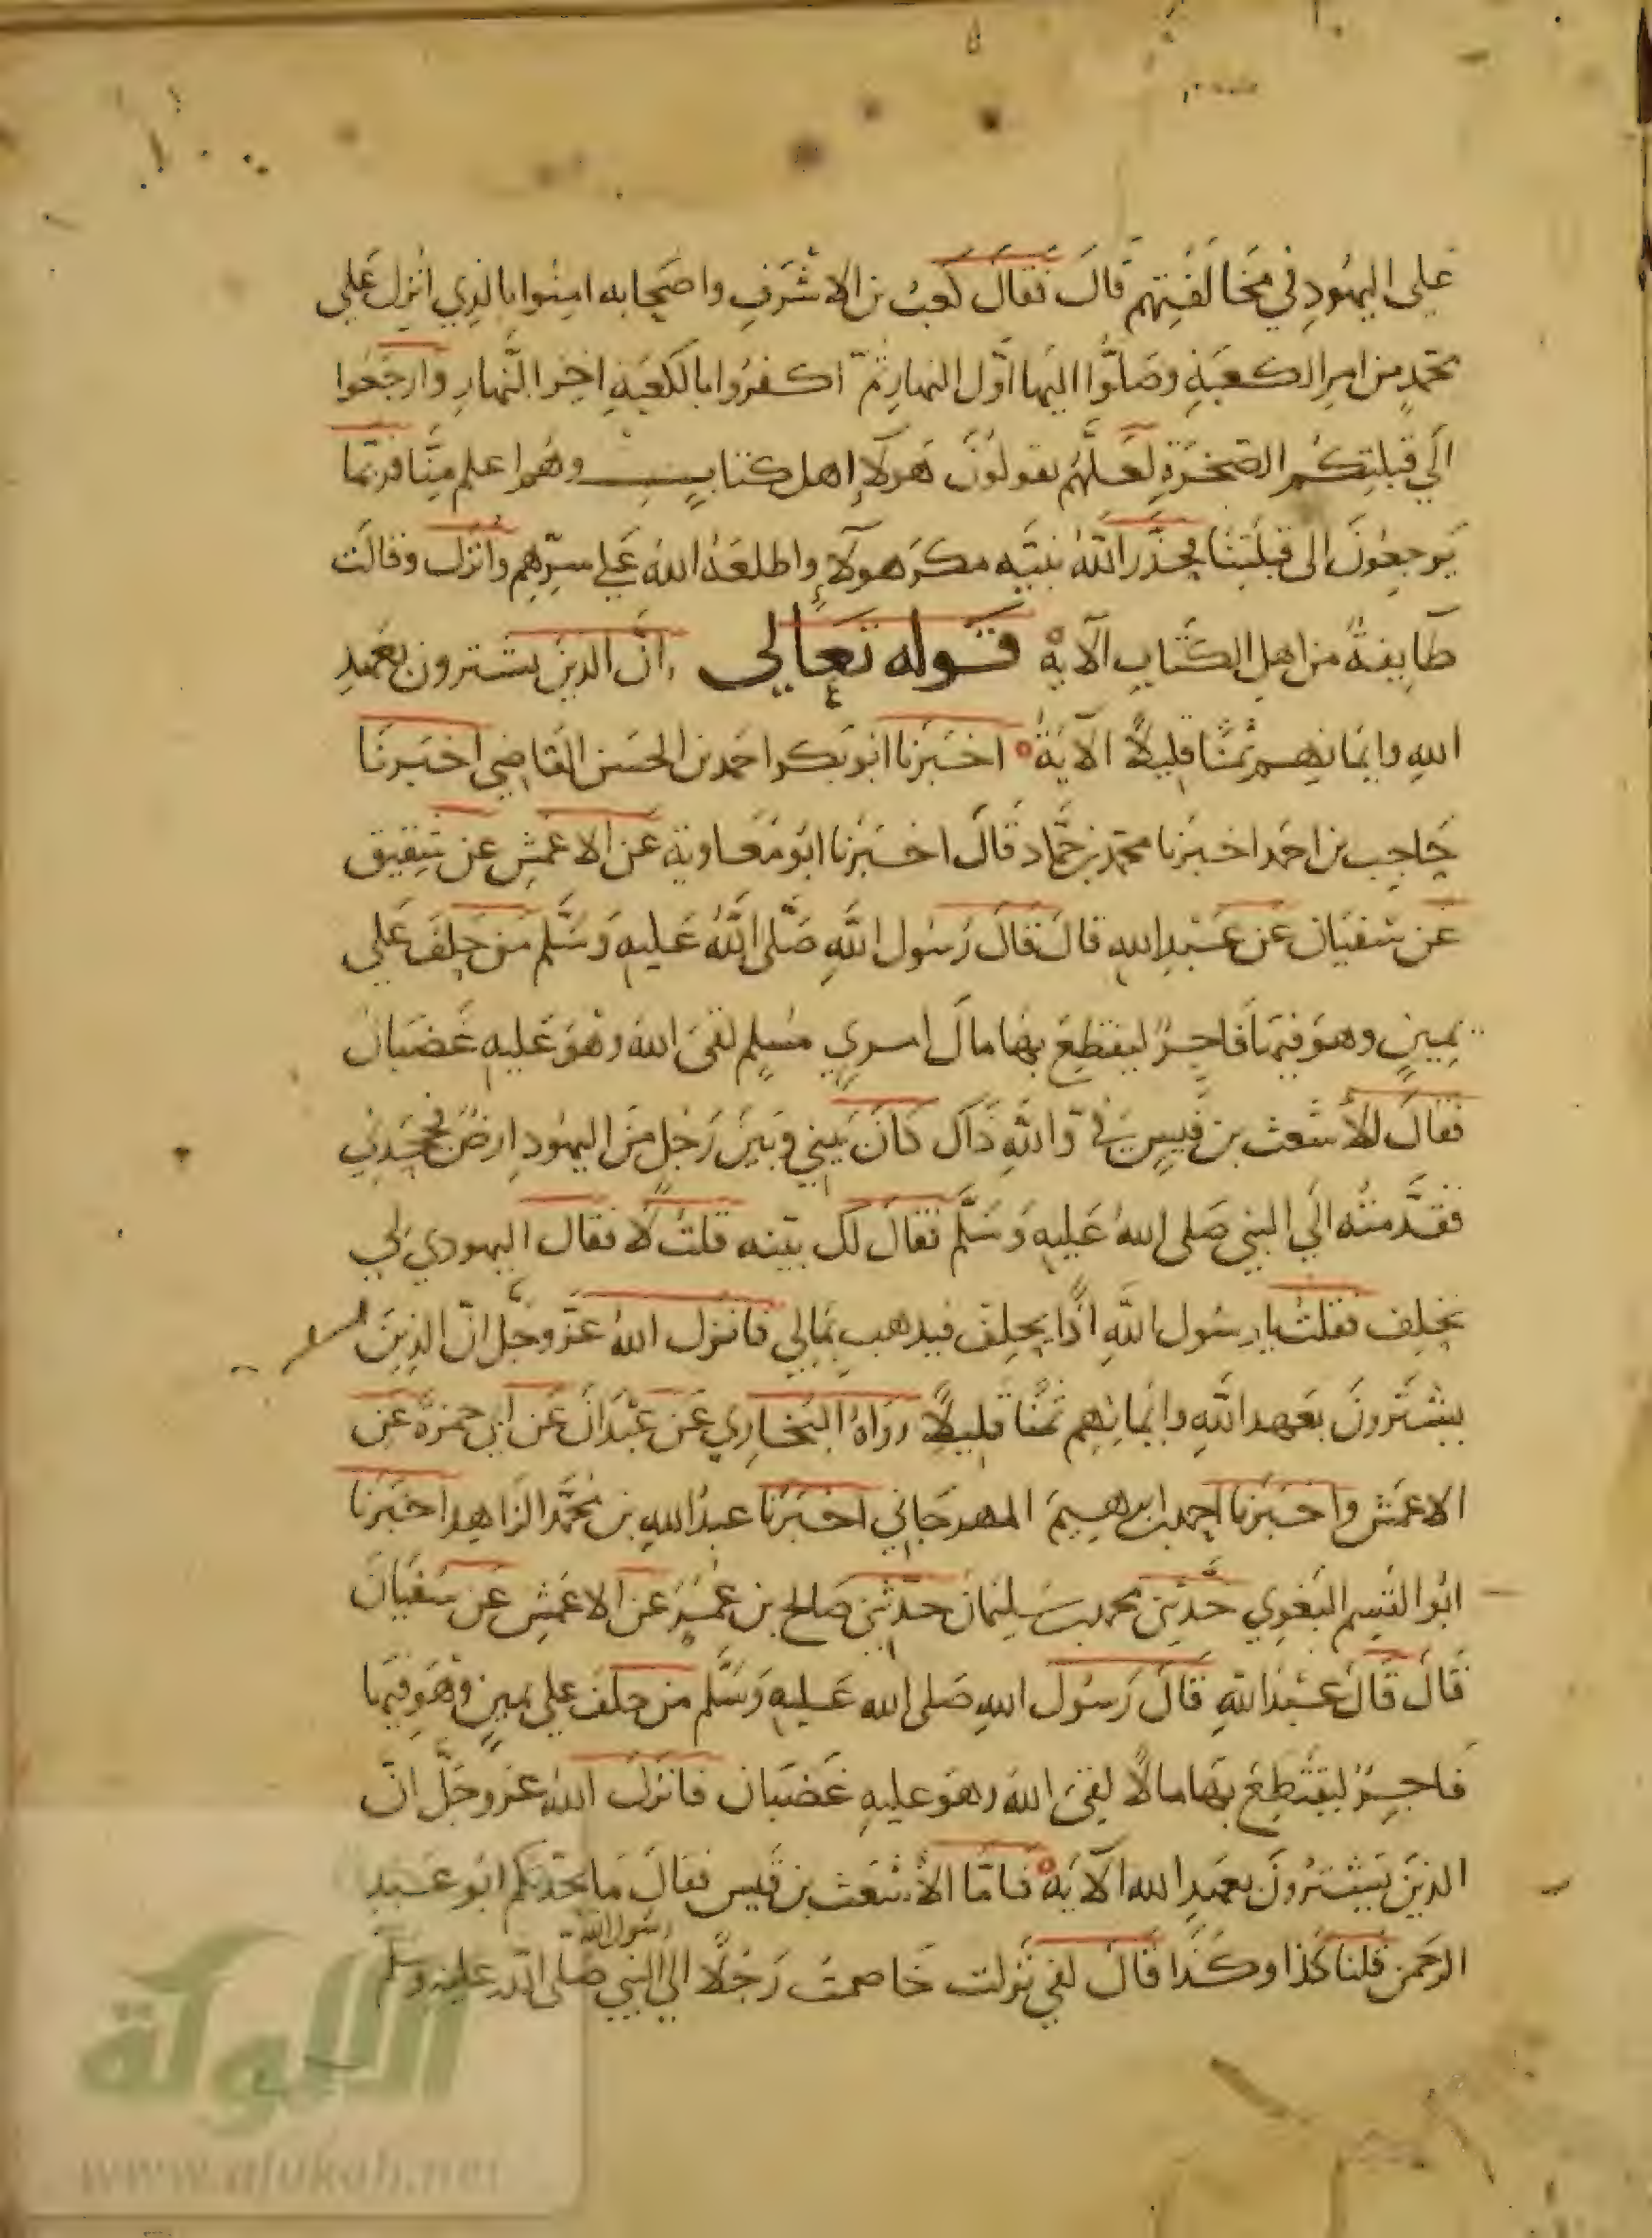 على اليهود في مخالفتهم قال فقال كعب بن الاشرف واصحابه امنوا بالذي انزل على
محمد من امر الكعبة وصلوا اليها اول النهار ثم اكفروا بالكعبة اخر النهار وارجعوا
الى قبلتكم الصخرة لعلهم يقولون هولاء اهل كتاب وهم اعلم منا فربما
يرجعون الى قبلتنا فحذر الله نبيه مكر هولاء واطلعه الله على سرهم وانزل وقالت
طايفة من اهل الكتاب الآية قوله تعالى ان الذين يشترون بعهد
الله وايمانهم ثمنا قليلا الآية اخبرنا ابو بكر احمد بن الحسن القاضي اخبرنا
حاجب بن احمد اخبرنا محمد بن حماد قال اخبرنا ابو معاوية عن الاعمش عن شقيق
عن سفيان عن عبد الله قال قال رسول الله صلى الله عليه وسلم من حلف على
يمين وهو فيها فاجر ليقتطع بها مال امرئ مسلم لقي الله وهو عليه غضبان
فقال الأشعث بن قيس في والله ذاك كان بيني وبين رجل من اليهود ارض فجحدني
فقدمته الى النبي صلى الله عليه وسلم فقال لك بينه قلت لا فقال لليهودي
يحلف فقلت يا رسول الله اذا يحلف فيذهب بمالي فانزل الله عز وجل ان الذين
يشترون بعهد الله وايمانهم ثمنا قليلا رواه البخاري عن عبدان عن ابي حمزة عن
الاعمش واخبرنا احمد بن ابرهيم المهرجاني اخبرنا عبد الله بن محمد الزاهد اخبرنا
ابو القسم البغوي حدثني محمد بن سليمان حدثني صالح بن عمر عن الاعمش عن سفيان
قال قال عبد الله قال رسول الله صلى الله عليه وسلم من حلف على يمين وهو فيها
فاجر ليقتطع بها مالا لقي الله وهو عليه غضبان فانزل الله عز وجل ان
الذين يشترون بعهد الله الآية فاما الأشعث بن قيس فقال ما يحدثكم ابو عبد
رسول الله
الرحمن قلنا كذا وكذا قال لفي نزلت خاصمت رجلا الى النبي صلى الله عليه وسلم
الألوكة
www.alukah.net